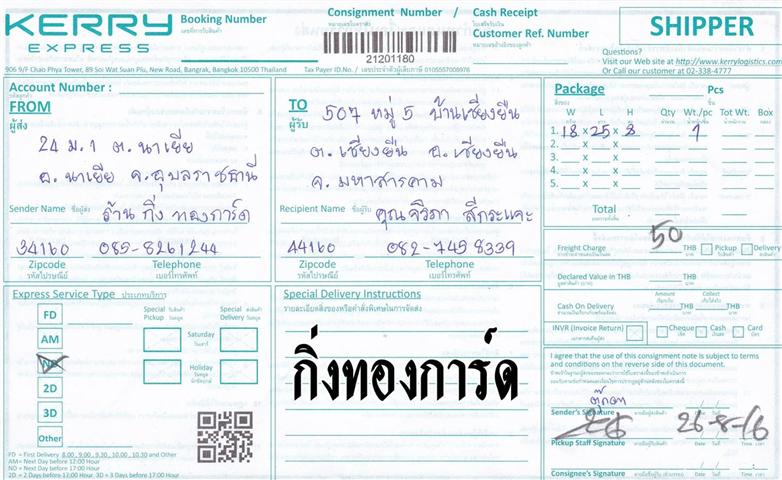 KERRY
EXPRESS
Booking Number
เลขที่การรับสินค้า
Consignment Number / Cash Receipt
หมายเลขใบตราส่ง
ใบเสร็จรับเงิน
21201180
Customer Ref. Number
หมายเลขอ้างอิงของลูกค้า
SHIPPER
Questions?
Visit our Web site at http://www.kerrylogistics.com
Or Call our customer at 02-338-4777
906 9/F Chao Phya Tower, 89 Soi Wat Suan Plu, New Road, Bangrak, Bangkok 10500 Thailand
Tax Payer ID.No. / เลขประจำตัวผู้เสียภาษี 0105557008976
Account Number :
รหัสลูกค้า
FROM
ผู้ส่ง
24 ม.1 ต.นาเยีย
อ.นาเยีย จ.อุบลราชธานี
Sender Name ชื่อผู้ส่ง ร้าน กิ่งทองการ์ด
34160 085-8261244
Zipcode Telephone
รหัสไปรษณีย์ เบอร์โทรศัพท์
TO
ผู้รับ
507 หมู่ 5 บ้านเชียงยืน
ต.เชียงยืน อ.เชียงยืน
จ.มหาสารคาม
Recipient Name ชื่อผู้รับ คุณจิวิภา สีกระแจะ
44160 082-745 8339
Zipcode Telephone
รหัสไปรษณีย์ เบอร์โทรศัพท์
Package Pcs
สิ่งของ ชิ้น
W L H Qty Wt./pc Tot Wt. Box
1. 18 x 25 x 8 1
2. x x
3. x x
4. x x
5. x x
Total
50
Freight Charge THB Pickup Delivery
Declared Value in THB THB
Amount Collect
Cash On Delivery THB THB
INVR (Invoice Return) Cheque Cash Card
Express Service Type ประเภทบริการ
Special Pickup Special Delivery
FD
AM
ND
2D
3D
Other
Saturday
วันเสาร์
Holiday
วันหยุด
นักขัตฤกษ์
FD = First Delivery 8.00 , 9.00 , 9.30, 10.00, 10.30 and Other
AM= Next Day before 12:00 Hour
ND = Next Day before 17:00 Hour
2D = 2 Days before 17:00 Hour 3D = 3 Days before 17:00 Hour
Special Delivery Instructions
รายละเอียดสิ่งของหรือคำสั่งพิเศษในการจัดส่ง
กิ่งทองการ์ด
I agree that the use of this consignment note is subject to terms
and conditions on the reverse side of this document.
ตุ๊กตา
Sender's Signature ลายมือชื่อผู้ส่งสินค้า Date วันที่ Time เวลา
26-8-16
Pickup Staff Signature Date วันที่ Time เวลา
Consignee's Signature Date วันที่ Time เวลา